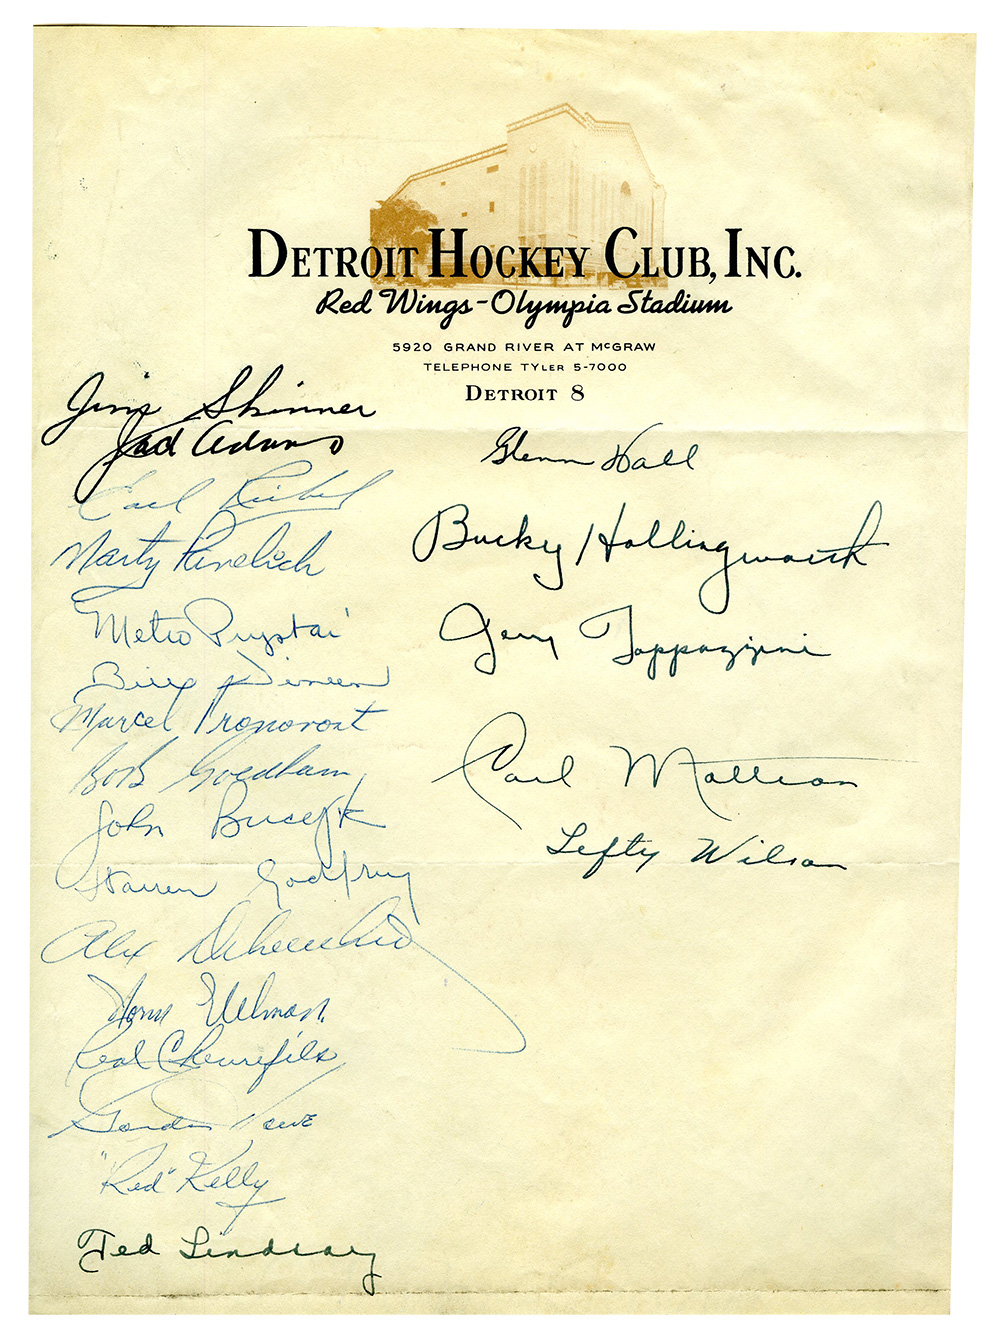 DETROIT HOCKEY CLUB, INC.
Red Wings - Olympia Stadium
5920 GRAND RIVER AT McGRAW
TELEPHONE TYLER 5-7000
DETROIT 8
Jim Skinner
Jack Adams
Earl Reibel
Marty Pavelich
Metro Prystai
Bill Dineen
Marcel Pronovost
Bob Goldham
John Bucyk
Warren Godfrey
Alex Delvecchio
Norm Ullman
Real Chevrefils
Gordie Howe
"Red" Kelly
Ted Lindsay
Glenn Hall
Bucky Hollingworth
Jerry Toppazzini
Carl Mattson
Lefty Wilson